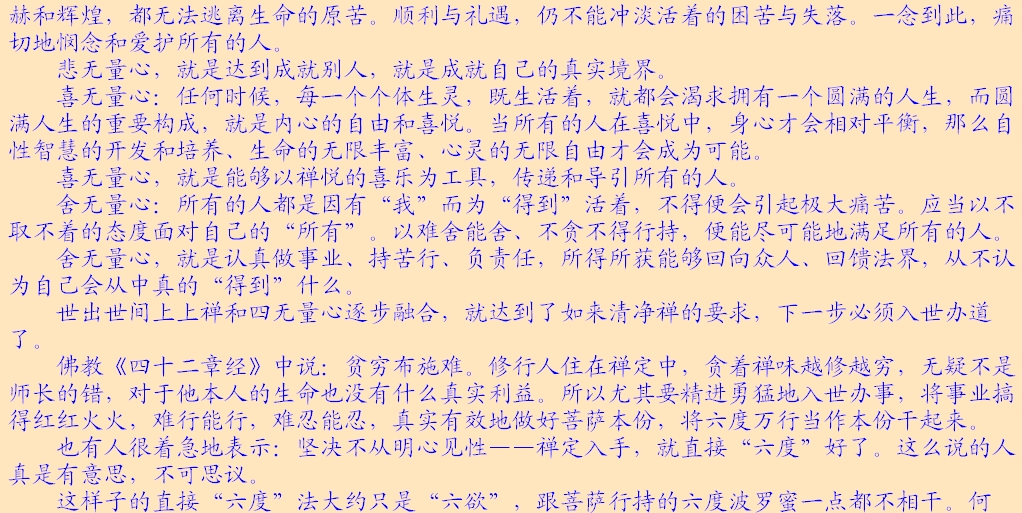 赫和辉煌，都无法逃离生命的原苦。顺利与礼遇，仍不能冲淡活着的困苦与失落。一念到此，痛
切地悯念和爱护所有的人。
悲无量心，就是达到成就别人，就是成就自己的真实境界。
喜无量心：任何时候，每一个个体生灵，既生活着，就都会渴求拥有一个圆满的人生，而圆
满人生的重要构成，就是内心的自由和喜悦。当所有的人在喜悦中，身心才会相对平衡，那么自
性智慧的开发和培养、生命的无限丰富、心灵的无限自由才会成为可能。
喜无量心，就是能够以禅悦的喜乐为工具，传递和导引所有的人。
舍无量心：所有的人都是因有“我”而为“得到”活着，不得便会引起极大痛苦。应当以不
取不着的态度面对自己的“所有”。以难舍能舍、不贪不得行持，便能尽可能地满足所有的人。
舍无量心，就是认真做事业、持苦行、负责任，所得所获能够回向众人、回馈法界，从不认
为自己会从中真的“得到”什么。
世出世间上上禅和四无量心逐步融合，就达到了如来清净禅的要求，下一步必须入世办道
了。
佛教《四十二章经》中说：贫穷布施难。修行人住在禅定中，贪着禅味越修越穷，无疑不是
师长的错，对于他本人的生命也没有什么真实利益。所以尤其要精进勇猛地入世办事，将事业搞
得红红火火，难行能行，难忍能忍，真实有效地做好菩萨本份，将六度万行当作本份干起来。
也有人很着急地表示：坚决不从明心见性——禅定入手，就直接“六度”好了。这么说的人
真是有意思，不可思议。
这样子的直接“六度”法大约只是“六欲”，跟菩萨行持的六度波罗蜜一点都不相干。何